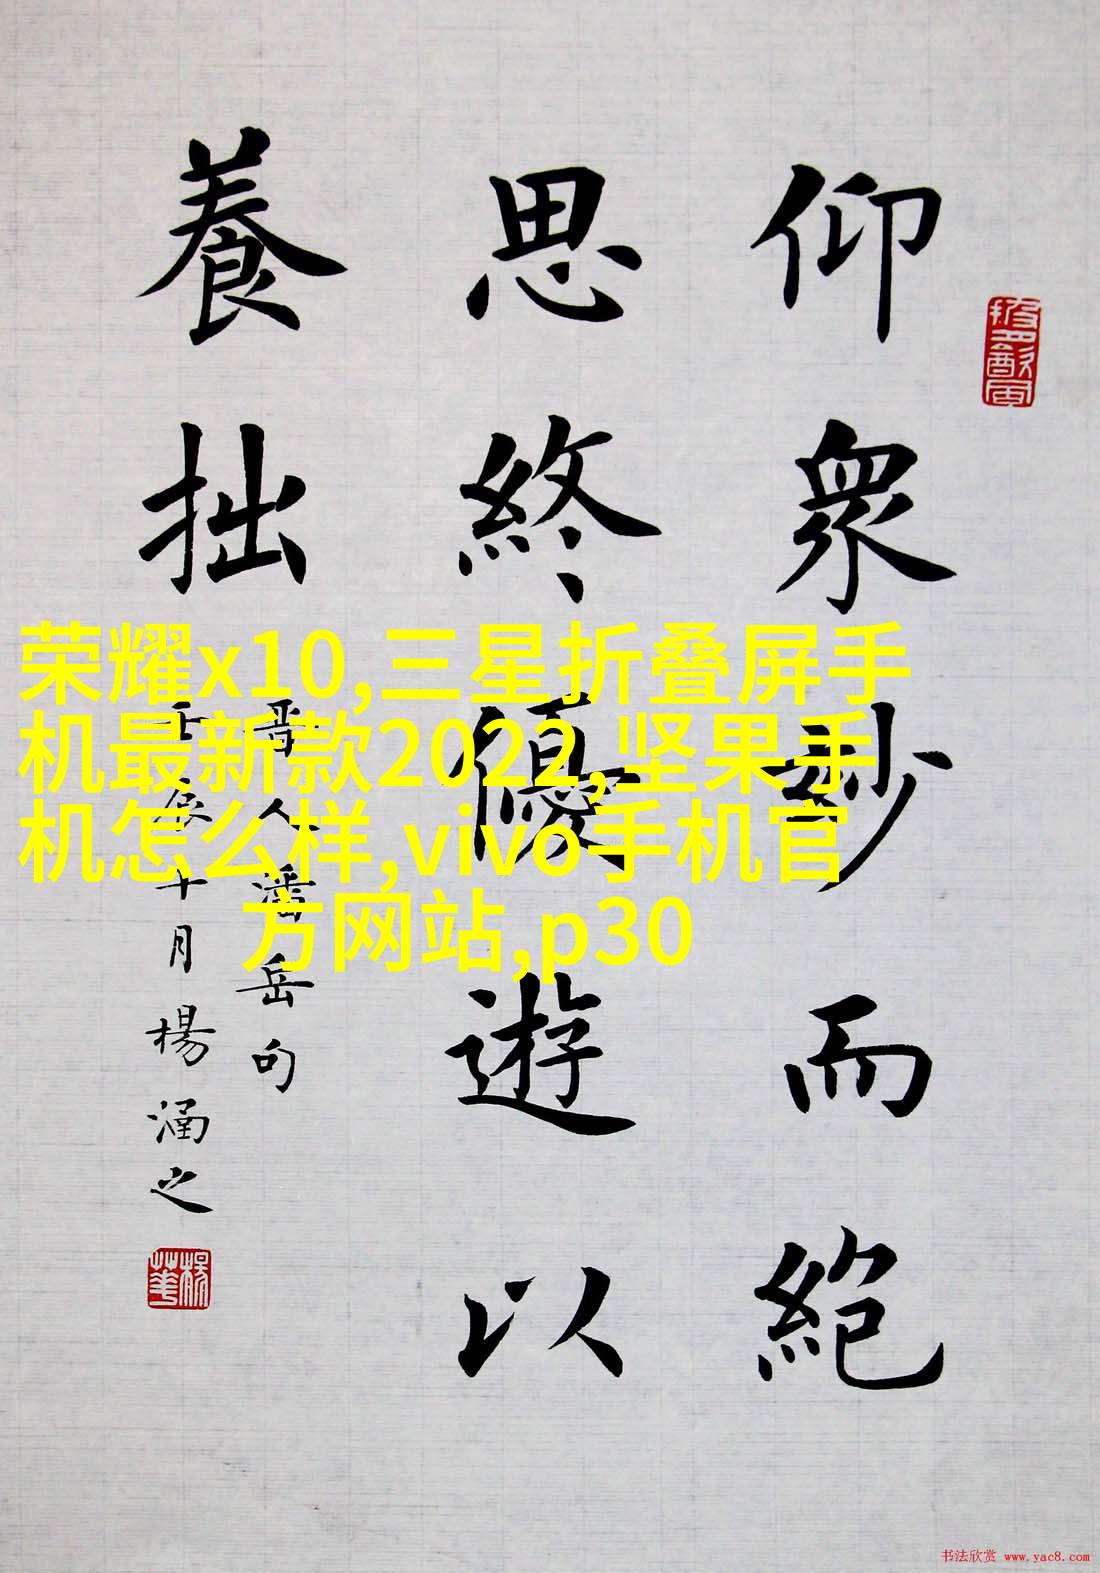 仰衆妙而絕
思終優遊以
養拙
晋人潘岳句
壬辰十月楊涵之
荣耀x10,三星折叠屏手
机最新款2022,坚果手
机怎么样,vivo手机官
方网站,p30
书法欣赏 www.yac8.com